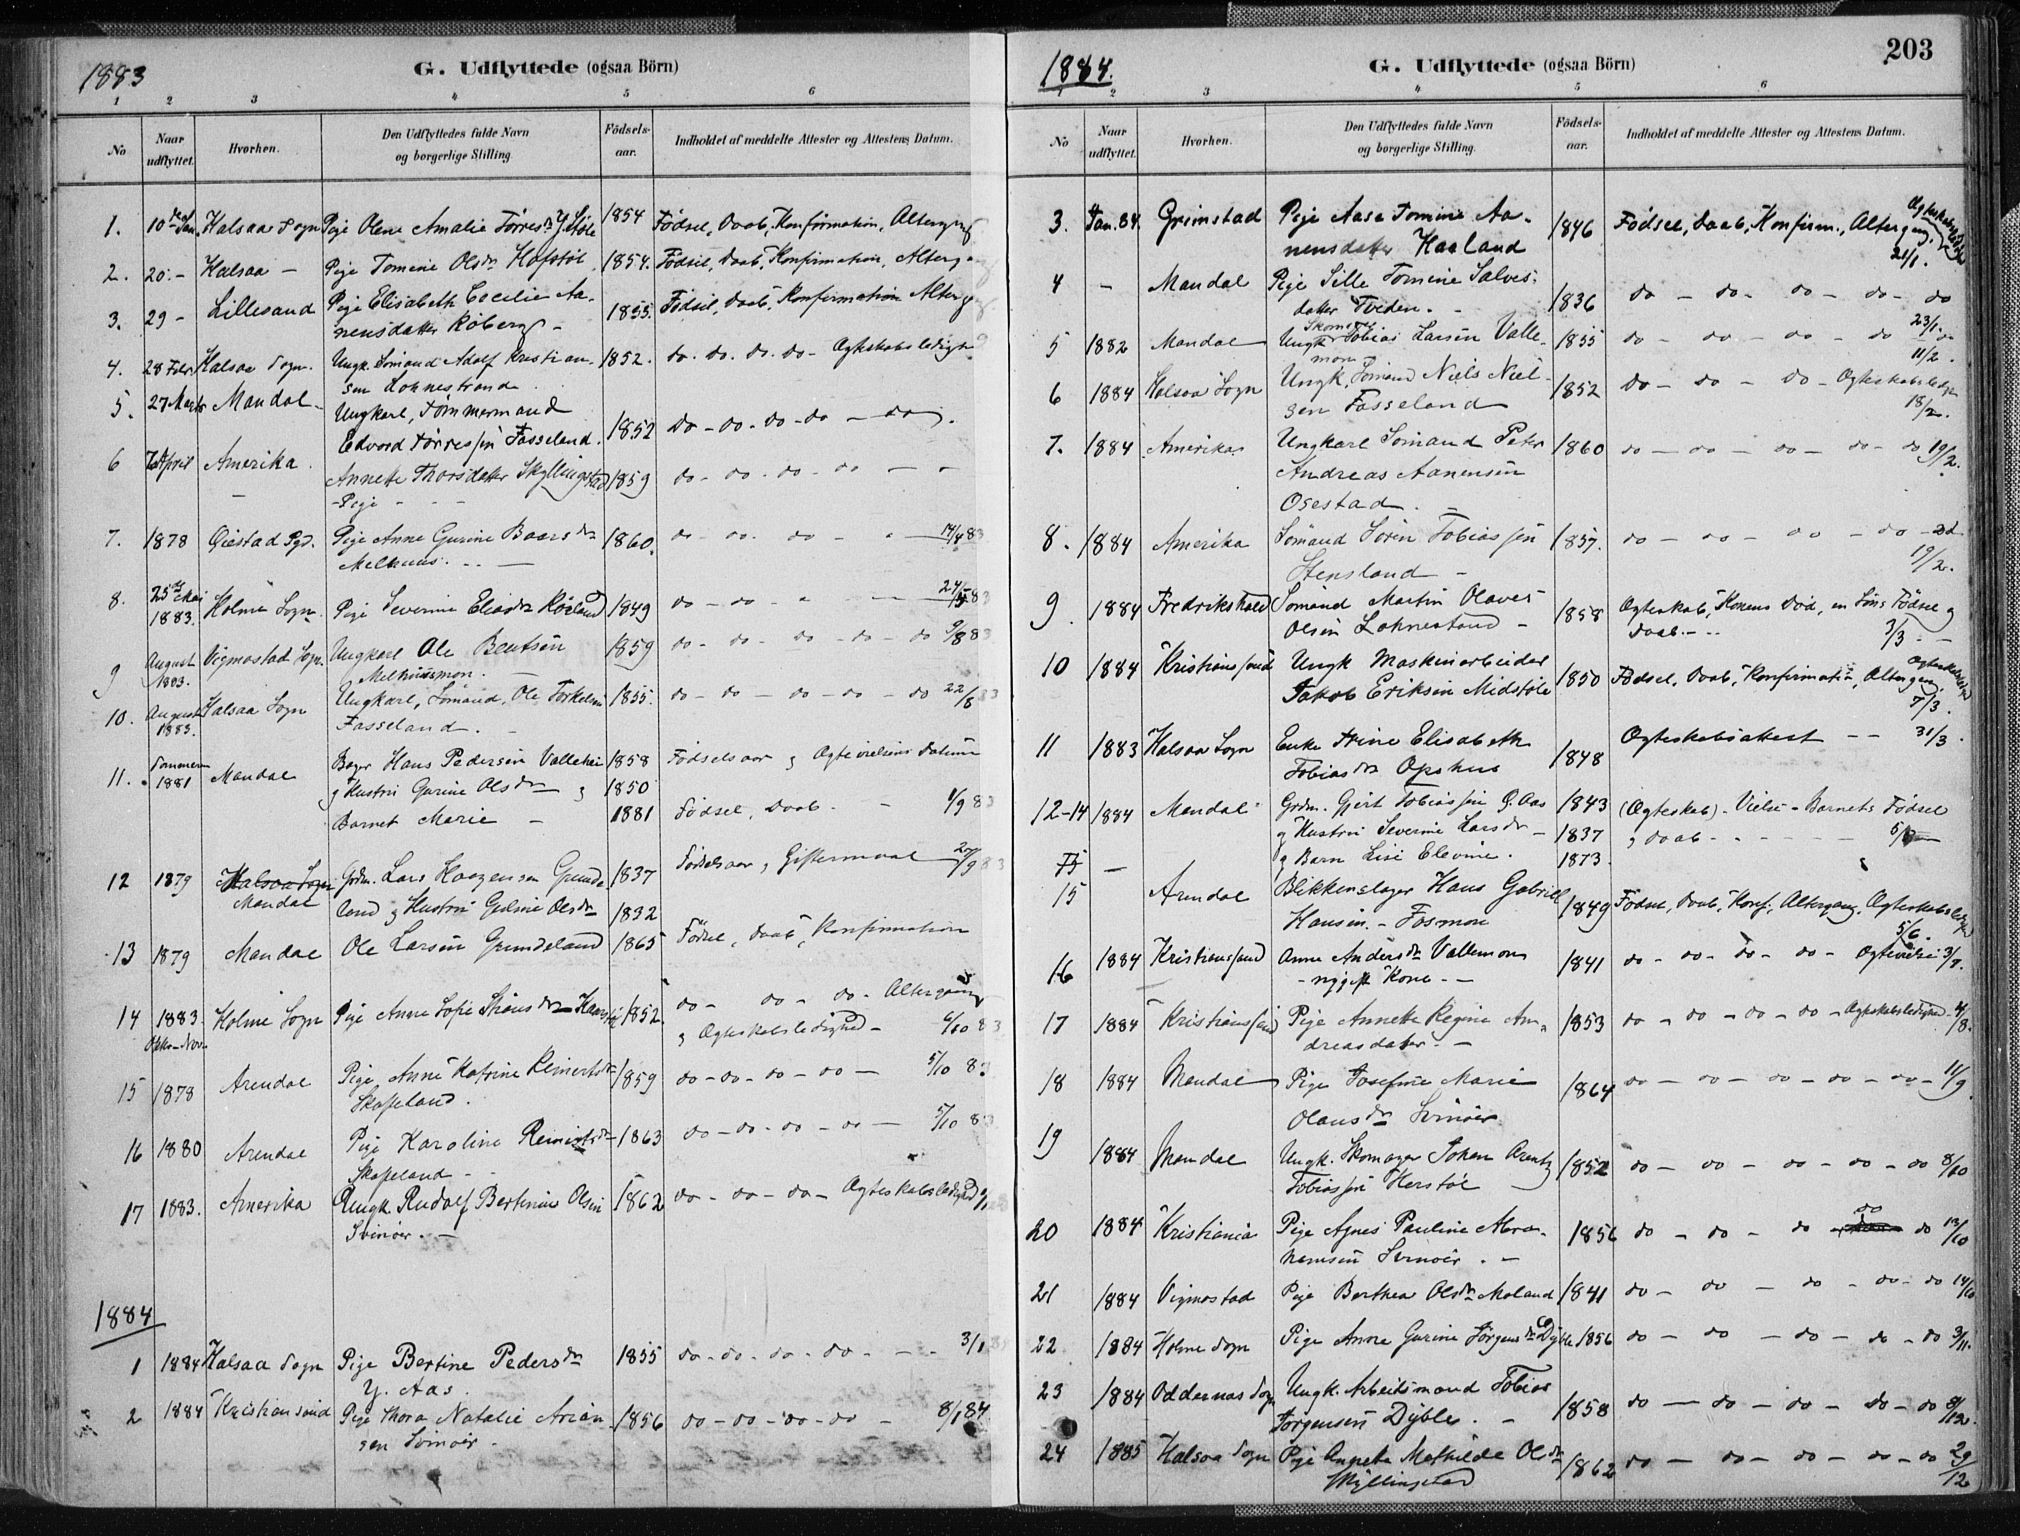 1883
G. Udflyttede (ogsaa Börn)
1 2 3 4 5 6
No
Naar udflyttet.
Hvorhen.
Den Udflyttedes fulde Navn og borgerlige Stilling.
Födsels-aar.
Indholdet af meddelte Attester og Attestens Datum.
1. 10de Jan. Halsaa Sogn Pige Olene Amalie Törresdr Y. Støle 1854 Födsel, Daab, Konfirmation, Altergang
2. 20 - Halsaa - Pige Tomine Olsdr Hofstøl 1854. Födsel, Daab, Konfirmation, Alterg
3. 29 - Lillesand Pige Elisabeth Cecilie Aa-
nensdatter Röberg - 1855. Födsel, Daab, Konfirmation Alterg
4. 28 Febr Halsaa Sogn. Ungk. Sömand Adolf Kristian-
sen Lohnestrand. 1852. do. do. do. do - Ogteskabsledigh
5. 27 Marts Mandal - Ungkarl, Tömmermand
Edvard Törressen Fasseland. 1852 do - do - do - do - do.
6 April Amerika. Annette Thorsdatter Skyllingstad 1859 do - do - do - do - -
- Pige - - -
7. 1878 Öiestad Pgd. Pige Anne Gurine Baarsdr 1860. do - do. do - - 14/4 83
Melhuus. - -
8. 25de Mai 1883. Holme Sogn. Pige Severine Eliasdr 1849 do - do - - - 24/5 83
9 August 1883. Vigmostad Sogn. Ungkarl Ole Bentsen 1859 do - do - do - do - do 9/8 83
Melhuusmon. -
10. August 1883. Halsaa Sogn Ungkarl, Sömand, Ole Torkelsen 1855. do - do - do - do - do 22/8 83
Fasseland. -
11. Sommeren 1881 Mandal Bager Hans Pedersen Vallehei 1858 Födselsaar og Ogtevielsens Datum
og Hustru Gurine Olsdr og 1850
Barnet Marie - 1881 Födsel, Daab. - 1/9 83
12 1879 Halsaa Sogn
Mandal Grdm. Lars Haagensen Grunde- 1837 Födselsaar og Giftermaal 20/9 83
land og Hustru Olsdr 1832
13 1879 Mandal Ole Larsen Grundeland 1865 Födsel, Daab, Konfirmation
14 1883. Oktbr-Nov. Holme Sogn Pige Anne Sofie 1852. do - do - do - Altergang
og Ogteskabsledighed - 6/10 83
15 1878 Arendal Pige, Anne Katrine Reinertsdr 1859 do - do - do - do - 5/10 83
Skofteland.
16 1880 Arendal Pige Karoline Reinertsdr 1863 do - do - do - do - 5/10 83
Skofteland -
17 1883. Amerika Ungk. Rudolf Bertinius Olsen 1862 do - do - do - Ogteskabsledighed
Svinöer. -
1884
1 1884 Halsaa Sogn Pige Bertine Pedersdr 1855 do - do - do - do - - - 3/1
Y. Aas.
2 1884 Kristiansand Pige Thora Natalie Arian- 1856 do - do - do - do - 8/1 84
sen Svinöer.
1884.
G. Udflyttede (ogsaa Börn)
203
1 2 3 4 5 6
No
Naar udflyttet.
Hvorhen.
Den Udflyttedes fulde Navn og borgerlige Stilling.
Födsels-aar.
Indholdet af meddelte Attester og Attestens Datum.
3. Jan. 84. Grimstad Pige Aase Tomine Aa-
nensdatter Haaland 1846 Födsel, Daab, Konfirm., Altergang. 21/1.
4 - Mandal Pige Sille Tomine Salves-
datter Tveden. - 1836 do - do - do - do - do 23/1.
5 1882 Mandal Ungk. Skomager Tobias Larsen Valle-
mon 1855 do - do - do - do do 11/2.
6 1884 Halsaa Sogn Ungk, Sömand Niels Niel-
sen Fasseland 1852 do - do - do - Ogteskabsledigh 18/2.
7. 1884 Amerika Ungkarl Sömand Peter
Andreas Aanensen
Osestad. - 1860 do - do - do - do - do 19/2.
8. 1884 Amerika Sömand Sören Tobiassen
Stensland - 1837. do - do - do - do - do 19/2.
9. 1884 Fredrikshald Sömand Martin Olaves
Olsen Lohnestrand - 1858 Ogteskab, Konens Död, en Söns Födsel og
Daab. - - 3/3 - -
10 1884 Kristiansand Ungk Maskinarbeider
Jakob Eriksen Midtstöle 1850 Födsel, Daab, Konfirmation, Altergang, 7/3.
11 1883 Halsaa Sogn Enke Trine Elisabeth
Tobiasdr Opshus 1848 Ogteskabsattest - - 31/3.
12-14 1884 Mandal Grdm. Gjert Tobiassen Y. Aas 1843 (Ogteskab) - Vielse - Barnets Födsel
og Hustru Severine Larsdr - 1837 og Daab - - - - -
og Barn Lise Elevine. 1873.
15 -
15 Arendal Blikkenslager Hans Gabriel
Hansen. - Fosmon 1849 Födsel, Daab, Konf., Altergang, Ogteskabsledigh 5/6.
16 1884 Kristiansand Anne Andersdr Vallemon
- nygift Kone - - 1841 do - do - do - do - Ogtevielse 3/7.
17 1884 Kristiansand Pige Annette Regine An-
dreasdatter - - 1853 do - do - do - do - Ogteskabsledighed - 4/8.
18 1884 Mandal Pige Josefine Marie
Olausdr Svinöer 1864 do - do - do - do - do - 11/9.
19 1884 Mandal Ungk. Skomager Johan Arentz
Tobiassen Herstöl 1852 do - do - do - do - do 8/10
20 1884 Kristiania Pige Agnes Pauline Abra-
hamsen Svinöer. - 1856 do - do - do do do 13/10
21 1884 Vigmostad Pige Berthea Olsdr Moland 1841 do - do - do - do - do 14/10
22 1884 Holme Sogn Pige Anne Gurine Jörgensdr Dyble 1856 do - do - do - do - do 3/11.
23 1884 Oddernes Sogn Ungk. Arbeidsmand Tobias
Jörgensen Dyble. - 1858 do - do - do - do - do 8/12.
24 1885 Halsaa Sogn Pige Annete Mathilde Olsdr
Skyllingstad 1862 do - do - do - do - do 29/12